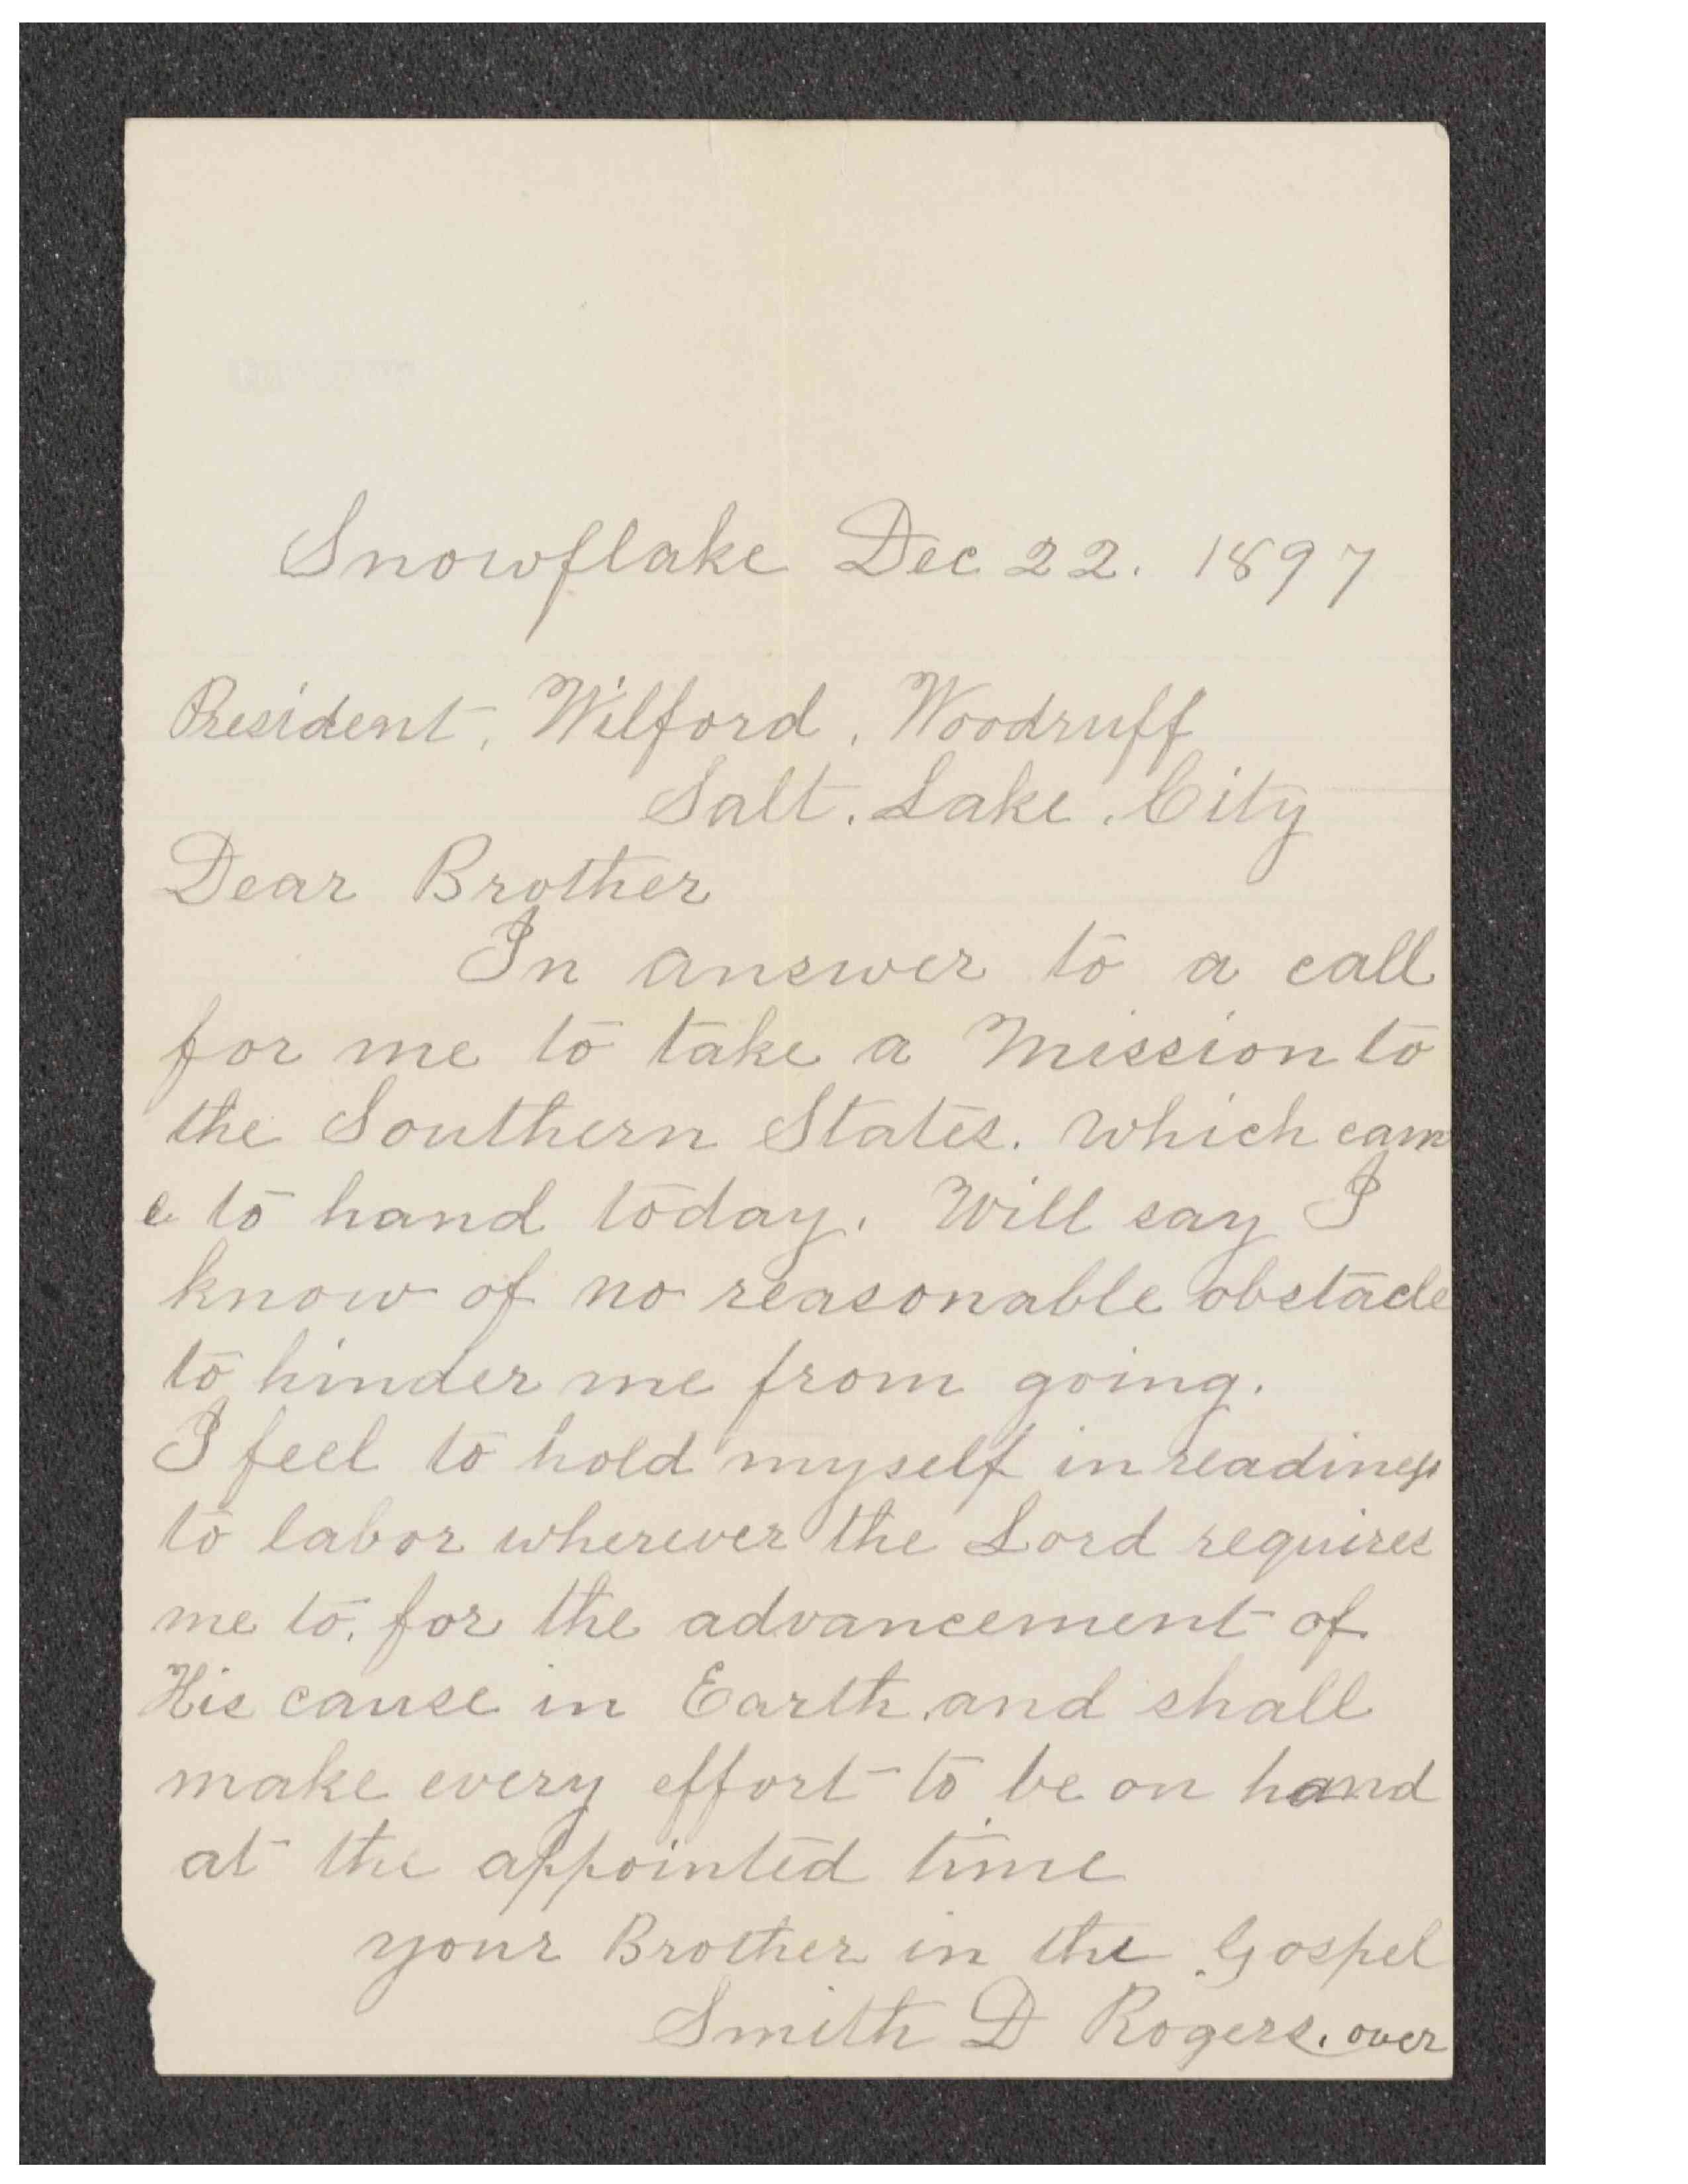 Snowflake Dec 22. 1897
President, Wilford, Woodruff
Salt. Lake. City
Dear Brother
In answer to a call
for me to take a Mission to
the Southern States. which cam
e to hand today. Will say I
know of no reasonable obstacle
to hinder me from going.
I feel to hold myself in readiness
to labor wherever the Lord requires
me to, for the advancement of
His cause in Earth, and shall
make every effort to be on hand
at the appointed time
your Brother in the Gospel
Smith D Rogers. over